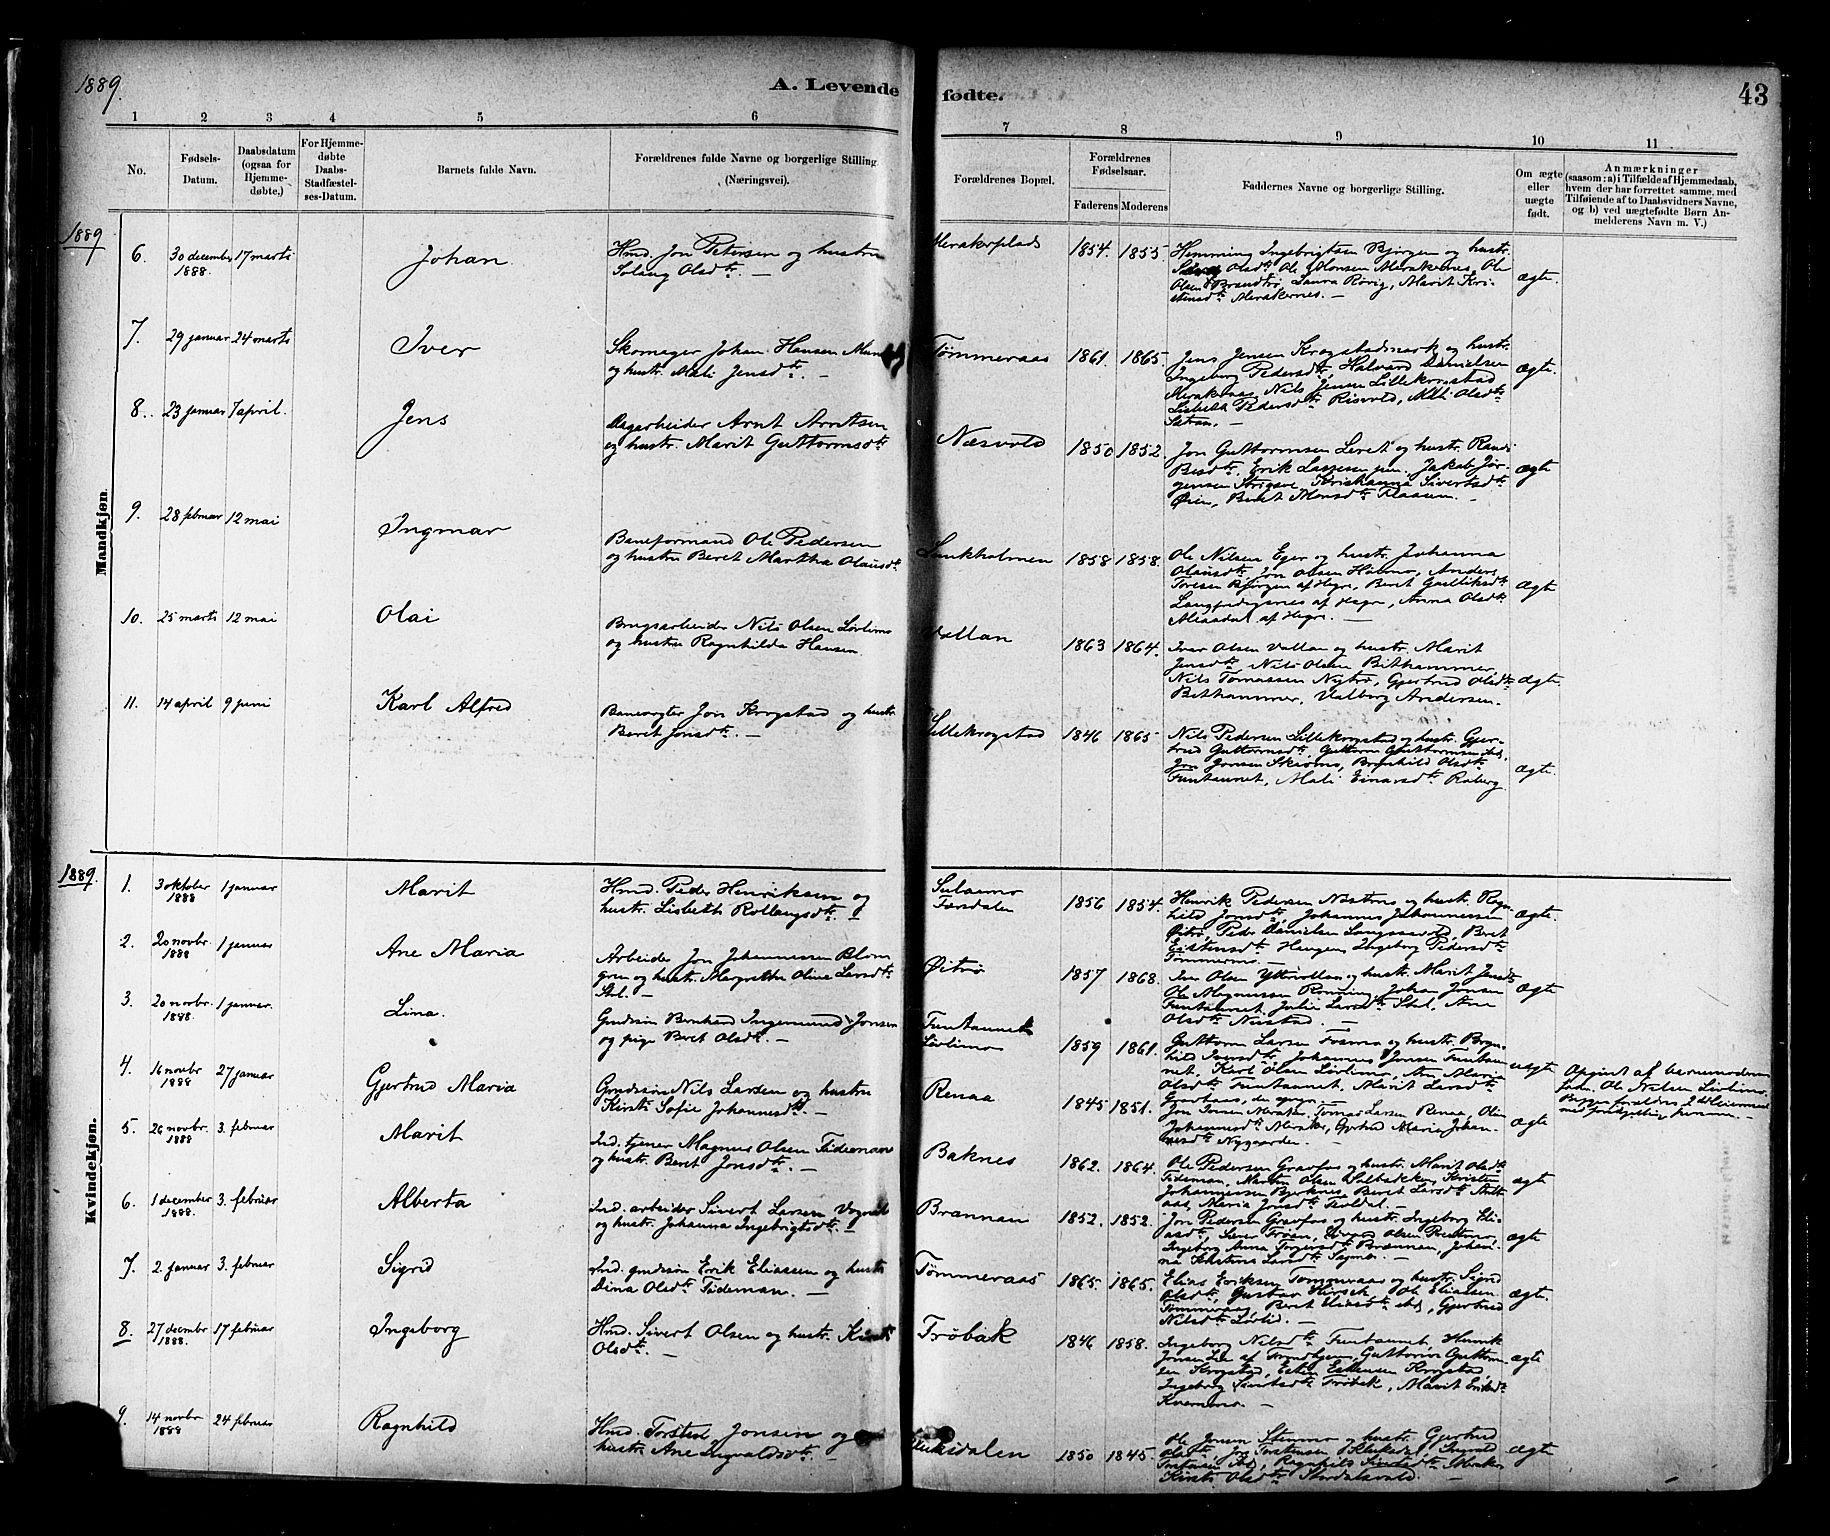 1889.
A. Levende fødte.
43
1 2 3 4 5 6 7 8 9 10 11
No.
Fødsels-Datum.
Daabsdatum (ogsaa for Hjemme-døbte.)
For Hjemme-døbte Daabs-Stadfæstel-ses-Datum.
Barnets fulde Navn.
Forældrenes fulde Navne og borgerlige Stilling. (Næringsvei).
Forældrenes Bopæl.
Forældrenes Fødselsaar.
Faderens Moderens
Faddernes Navne og borgerlige Stilling.
Om ægte eller uægte født.
Anmærkninger
(saasom: a) i Tilfælde af Hjemmedaab,
hvem der har forrettet samme, med
Tilføiende af to Daabsvidners Navne,
og b) ved uægtefødte Børn An-
melderens Navn m. V.)
1889
Mandkjøn.
6. 30 december 1888. 17 marts Johan.
Hmd. Jon Petersen og hustru
Solaug Olsdtr. —
Merakerplads 1854. 1855.
Hemming Ingebrigtsen Bjørgen og hustr.
Olsdtr. Ole Monsen Merakernes, Ole
Olsen Brandtrø, Laura Røvig, Marit Kri-
stensdtr. Merakernes. —
ægte.
7. 29 januar 24 marts Iver
Skomager Johan Hansen
og hustr. Mali Jensdtr. —
Tømmeraas 1861. 1865.
Jens Jensen Krogstadmark og hustr.
Ingeborg Pedersdtr., Halvard Danielsen
Merakernes, Nils Jensen Lillekrogstad
Lisbeth Pedersdtr. Risvold, Mali Olsdtr.
ægte.
8. 23 januar 7 april. Jens
Dagarbeider Arnt Arntsen
og hustr. Marit Guttormsdtr.
Næsvold 1850 1852.
Jon Guttormsen Leret og hustr. Randi
Erik Larssen jun. Jakob Jør-
gensen Kristianna Sivertsdtr.
Øien, Beret Monsdtr. —
ægte
9. 28 februar 12 mai Ingmar
Baneformand Ole Pedersen
og hustru Beret Martha Olausdtr.
Lunkholmen 1858 1858.
Ole Nilsen Eger og hustr. Johanna
Olausdtr. Jon Olsen Anders
Toresen Bjørgen af Hegre, Beret Gulliksdtr.
af Hegre, Anna Olsdtr.
af Hegre. —
ægte
10. 25 marts 12 mai Olai
Brugsarbeider Nils Olsen Løvlimo
og hustru Ragnhilda Hansen.
Vollan 1863 1864.
Iver Olsen Vollan og hustr. Marit
Jensdtr., Nils Olsen Bithammer,
Nils Tomassen Nytrø, Gjertrud Olsdtr.
Bithammer, Valborg Andersen.
ægte.
11. 14 april 9 juni Karl Alfred
Banevogter Jon Krogstad og hustr.
Beret Jonsdtr. —
Lillekrogstad 1846 1865.
Nils Pedersen Lillekrogstad og hustr. Gjer-
trud Guttormsdtr., Guttorm Guttormsen
Jon Jonsen Brynhild Olsdtr.
Funtaunet, Mali Einarsdtr. Raberg
ægte.
1889.
Kvindekjøn.
1. 3 oktober 1888 1 januar Marit
Hmd. Peder Henriksen og
hustr. Lisbeth Rollaugsdtr. —
Sulaamo Færsdalen 1856 1854.
Henrik Pedersen og hustr. Ragn-
hild Jonsdtr., Johannes Johannessen
Øitrø, Peder Danielsen Langsaavold, Beret
Eistensdtr. Haugen, Ingeborg Pedersdtr.
Tømmermo. —
ægte.
2. 20 novbr. 1888 1 januar Ane Maria
Arbeider Jon Johannessen Blom
gren og hustr. Margrethe Oline Larsdtr.
Stel. —
Øitrø 1857 1868.
Iver Olsen Yttervollan og hustr. Marit Jensdtr.
Ole Magnussen Rønning, Johan Jonsen
Funtaunet, Julie Larsdtr. Stel, Ane
Olsdtr. Nustad. —
ægte
3. 20 novbr. 1888. 1 januar. Lina.
Grdsøn Bernhard Ingemund Jonsen
og pige Beret Olsdtr. —
Funtaunet Løvlimo 1859 1861.
Guttorm Larsen Fosmo og hustr. Bryn-
hild Iversdtr., Johannes Jonsen Funtau-
net, Karl Olsen Løvlimo, Ane Marie
Olsdtr. Funtaunet, Marit Larsdtr.
uægte
Opgivet af barnemoderens
fader Ole Nielsen Løvlimo.
4. 16 novbr 1888 27 januar Gjertrud Maria
Grndsøn Nils Larsen og hustru
Kirsti Sofie Johannesdtr. —
Renaa 1845 1851.
Jon Meraker, Tomas Larsen Renaa, Oline
Johannesdtr. Meraker, Gjertrud Marie Johan-
nesdtr. Nygaarden. —
ægte
5. 26 novbr. 1888 3. februar Marit
Ind. tjener Magnus Olsen Tideman
og hustr. Beret Jonsdtr. —
Baknes 1862. 1864.
Ole Pedersen Graafos og hustr. Marit Olsdtr.
Tideman, Martin Olsen Kristen
Johannessen Bjerknes, Beret Larsdtr.
Maria Jonsdtr. —
ægte
6. 1 december 1888. 3. februar Alberta
Ind. arbeider Sivert Larsen
og hustr. Johanna Ingebrigtsdtr. —
Brannan 1852. 1852.
Jon Pedersen Graafos og hustr. Ingeborg Eli-
asdtr., Iver Olsen
Ingeborg Anna Brannan, Johan-
na Larsdtr. —
ægte
7. 2 januar 3. februar Sigrid
Ind. grndsøn Erik Eliassen og hustr.
Dina Olsdtr. Tideman. —
Tømmeraas 1865. 1865.
Elias Eriksen Tømmeraas og hustr. Sigrid
Olsdtr., Gustav Hirsch, Ole Eliassen
Tømmeraas, Beret Eliasdtr. Gjertrud
Nilsdtr. Løvlid. —
ægte.
8. 27 decembr 1888. 17 februar Ingeborg
Hmd. Sivert Olsen og hustr. Kirsti
Olsdtr. —
Trøbak 1846 1858.
Ingeborg Nilsdtr. Funtaunet, Henrik
Jonsen af Trondhjem, Guttorm Guttorm-
sen Krogstad, Esten Estensen Krogstad
Ingeborg Sivertsdtr. Trøbak, Marit Eriksdtr.
Kvernmo. —
ægte
9. 14 novbr 1888 24 februar Ragnhild
Hmd. Torsten Jonsen og
hustr. Ane Ingvaldsdtr. —
Klukdalen 1850 1845.
Ole Jonsen Stenmo og hustr. Gjertrud
Olsdtr., Jon Torstensen Klukdal, Ingvald
Torstensen Ragnhild Sivertsdtr. Meraker
Kirsti Olsdtr. —
ægte